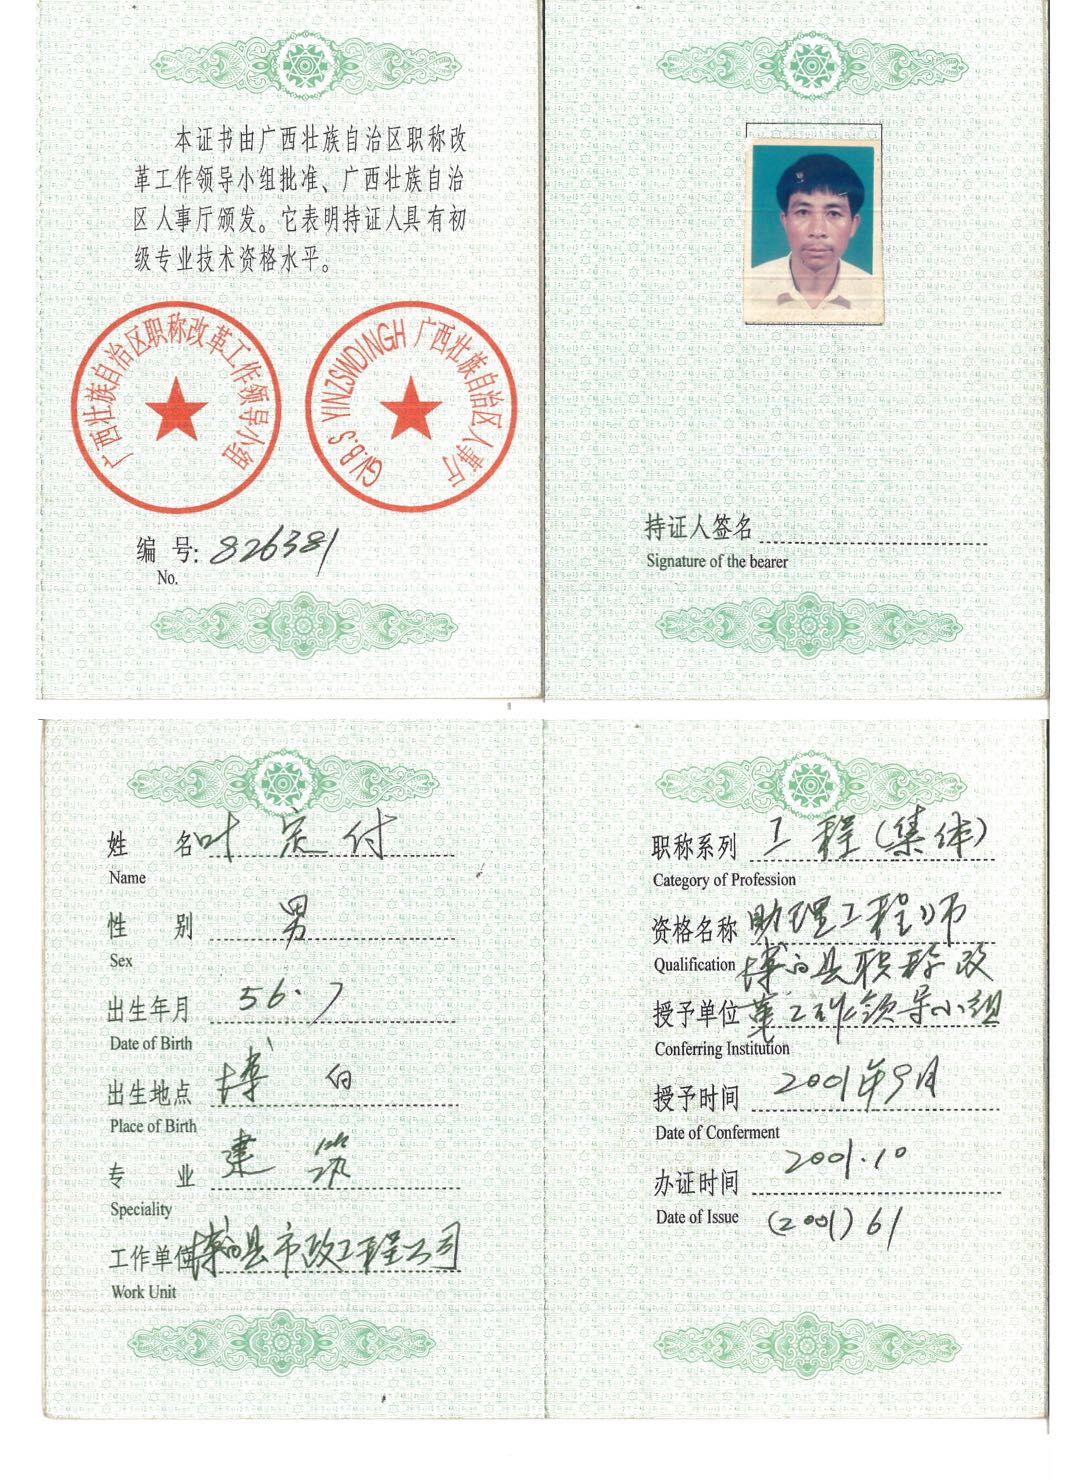 本证书由广西壮族自治区职称改
革工作领导小组批准、广西壮族自治
区人事厅颁发。它表明持证人具有初
级专业技术资格水平。
广西壮族自治区职称改革工作领导小组
GV.B.S YINZSWDINGH 广西壮族自治区人事厅
编 号: 826381
No.
持证人签名
Signature of the bearer
姓 名 叶定付
Name
性 别 男
Sex
出生年月 56.7
Date of Birth
出生地点 博白
Place of Birth
专 业 建筑
Speciality
工作单位 博白县市政工程公司
Work Unit
职称系列 工程(集体)
Category of Profession
资格名称 助理工程师
Qualification 博白县职称改
授予单位 革工作领导小组
Conferring Institution
授予时间 2001年9月
Date of Conferment
办证时间 2001.10
Date of Issue (2001)61